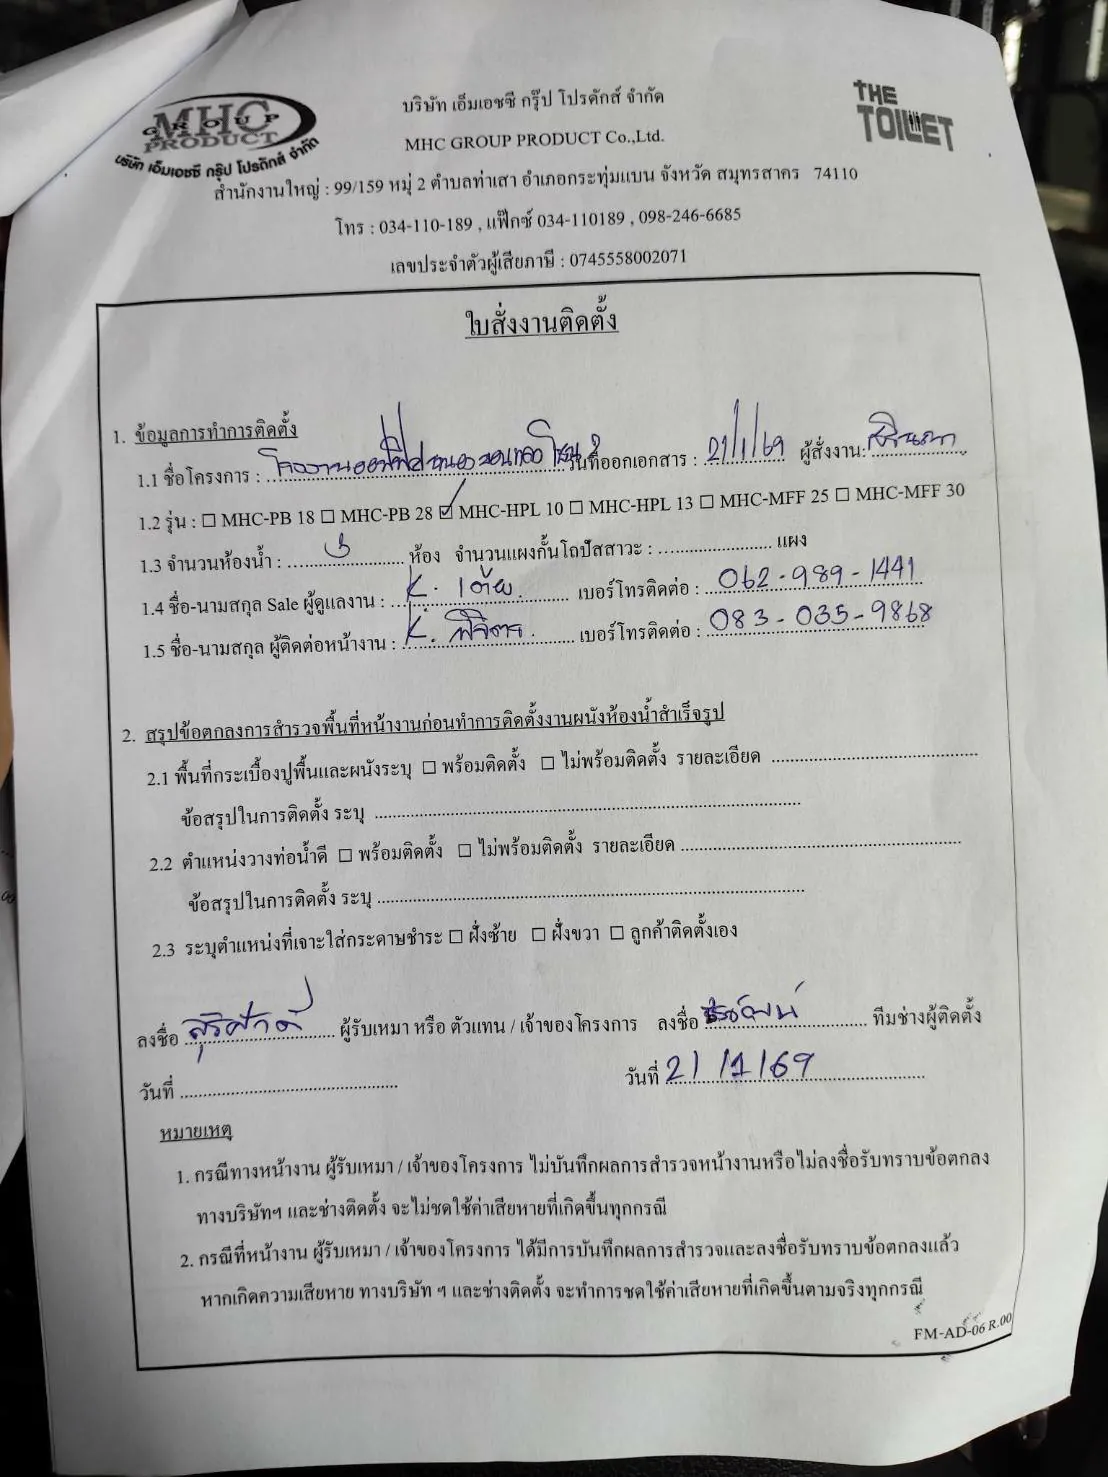 MHC
GROUP
PRODUCT
บริษัท เอ็มเอชซี กรุ๊ป โปรดักส์ จำกัด
THE
TOILET
บริษัท เอ็มเอชซี กรุ๊ป โปรดักส์ จำกัด
MHC GROUP PRODUCT Co.,Ltd.
สำนักงานใหญ่ : 99/159 หมู่ 2 ตำบลท่าเสา อำเภอกระทุ่มแบน จังหวัด สมุทรสาคร 74110
โทร : 034-110-189 , แฟ๊กซ์ 034-110189 , 098-246-6685
เลขประจำตัวผู้เสียภาษี : 0745558002071
ใบสั่งงานติดตั้ง
1. ข้อมูลการทำการติดตั้ง
1.1 ชื่อโครงการ : โรงงาน วันที่ออกเอกสาร : 21/1/69 ผู้สั่งงาน:
1.2 รุ่น : ☐ MHC-PB 18 ☐ MHC-PB 28 ☑ MHC-HPL 10 ☐ MHC-HPL 13 ☐ MHC-MFF 25 ☐ MHC-MFF 30
1.3 จำนวนห้องน้ำ : ห้อง จำนวนแผงกั้นโถปัสสาวะ : แผง
1.4 ชื่อ-นามสกุล Sale ผู้ดูแลงาน : K. เต้ย เบอร์โทรติดต่อ : 062-989-1441
1.5 ชื่อ-นามสกุล ผู้ติดต่อหน้างาน : K. เบอร์โทรติดต่อ : 083-035-9868
2. สรุปข้อตกลงการสำรวจพื้นที่หน้างานก่อนทำการติดตั้งงานผนังห้องน้ำสำเร็จรูป
2.1 พื้นที่กระเบื้องปูพื้นและผนังระบุ ☐ พร้อมติดตั้ง ☐ ไม่พร้อมติดตั้ง รายละเอียด
ข้อสรุปในการติดตั้ง ระบุ
2.2 ตำแหน่งวางท่อน้ำดี ☐ พร้อมติดตั้ง ☐ ไม่พร้อมติดตั้ง รายละเอียด
ข้อสรุปในการติดตั้ง ระบุ
2.3 ระบุตำแหน่งที่เจาะใส่กระดาษชำระ ☐ ฝั่งซ้าย ☐ ฝั่งขวา ☐ ลูกค้าติดตั้งเอง
ลงชื่อ สุริศักดิ์ ผู้รับเหมา หรือ ตัวแทน / เจ้าของโครงการ ลงชื่อ ทีมช่างผู้ติดตั้ง
วันที่ วันที่ 21/1/69
หมายเหตุ
1. กรณีทางหน้างาน ผู้รับเหมา / เจ้าของโครงการ ไม่บันทึกผลการสำรวจหน้างานหรือไม่ลงชื่อรับทราบข้อตกลง
ทางบริษัทฯ และช่างติดตั้ง จะไม่ชดใช้ค่าเสียหายที่เกิดขึ้นทุกกรณี
2. กรณีที่หน้างาน ผู้รับเหมา / เจ้าของโครงการ ได้มีการบันทึกผลการสำรวจและลงชื่อรับทราบข้อตกลงแล้ว
หากเกิดความเสียหาย ทางบริษัท ฯ และช่างติดตั้ง จะทำการชดใช้ค่าเสียหายที่เกิดขึ้นตามจริงทุกกรณี
FM-AD-06 R.00